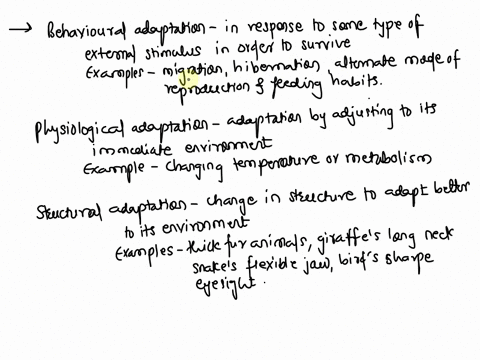 → Behavioural adaptation - in response to some type of
external stimulus in order to survive
Examples - migration, hibernation, alternate mode of
reproduction & feeding habits.
Physiological adaptation - adaptation by adjusting to its
immediate environment
Example - changing temperature or metabolism
Structural adaptation - change in structure to adapt better
to its environment
Examples - thick fur animals, giraffe's long neck
snake's flexible jaw, bird's sharpe
eyesight.